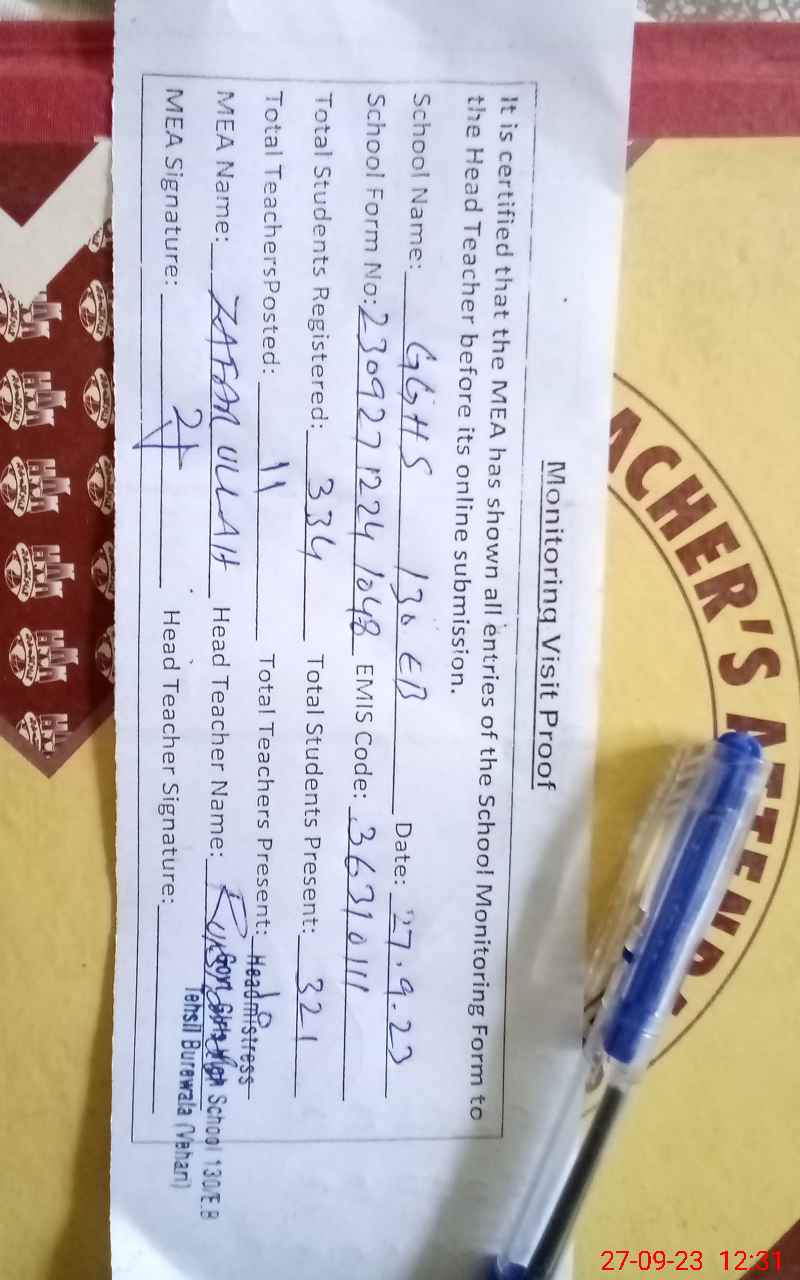 Monitoring Visit Proof
It is certified that the MEA has shown all entries of the School Monitoring Form to
the Head Teacher before its online submission.
School Name: GGHS 130 EB Date: 27.9.23
School Form No: 230927 1224 1048 EMIS Code: 36310111
Total Students Registered: 334 Total Students Present: 321
Total TeachersPosted: 11 Total Teachers Present: 10
Headmistress
MEA Name: ZAFAR ULLAH Head Teacher Name:
Govt. Girls High School 130/E.B
Tehsil Burewala (Vehari)
MEA Signature: Head Teacher Signature:
TEACHER'S ATTENDANCE
27-09-23 12:31